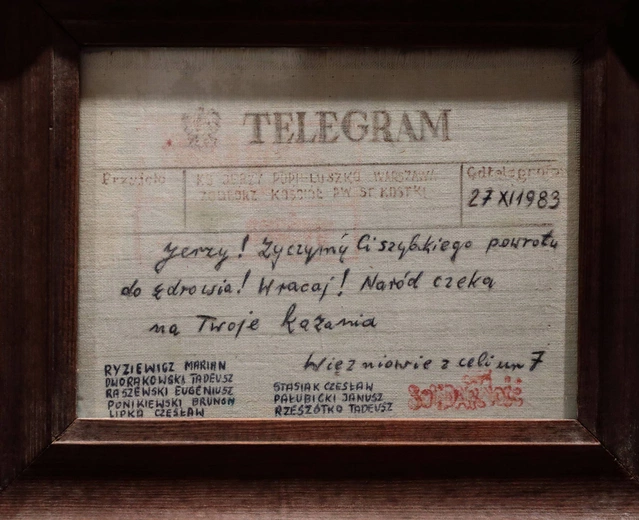 TELEGRAM
Przyjęto
KS JERZY POPIEŁUSZKO WARSZAWA
ŻOLIBORZ KOŚCIÓŁ PW ST KOSTKI
27 XI 1983
Jerzy! Życzymy Ci szybkiego powrotu
do zdrowia! Wracaj! Naród czeka
na Twoje kazania
Więźniowie z celi nr 7
RYZIEWICZ MARIAN
DWORAKOWSKI TADEUSZ
RASZEWSKI EUGENIUSZ
PONIKIEWSKI BRUNON
LIPKA CZESŁAW
STASIAK CZESŁAW
PAŁUBICKI JANUSZ
RZESZÓTKO TADEUSZ
SOLIDARNOŚĆ